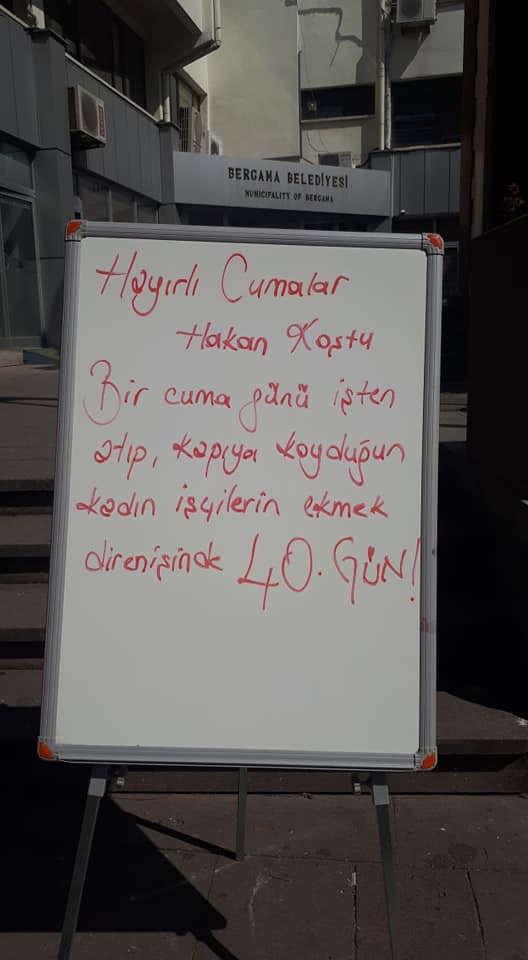 BERGAMA BELEDİYESİ
MUNICIPALITY OF BERGAMA
Hayırlı Cumalar
Hakan Koştu
Bir cuma günü işten
atıp, kapıya koyduğun
kadın işçilerin ekmek
direnişinde 40. GÜN!